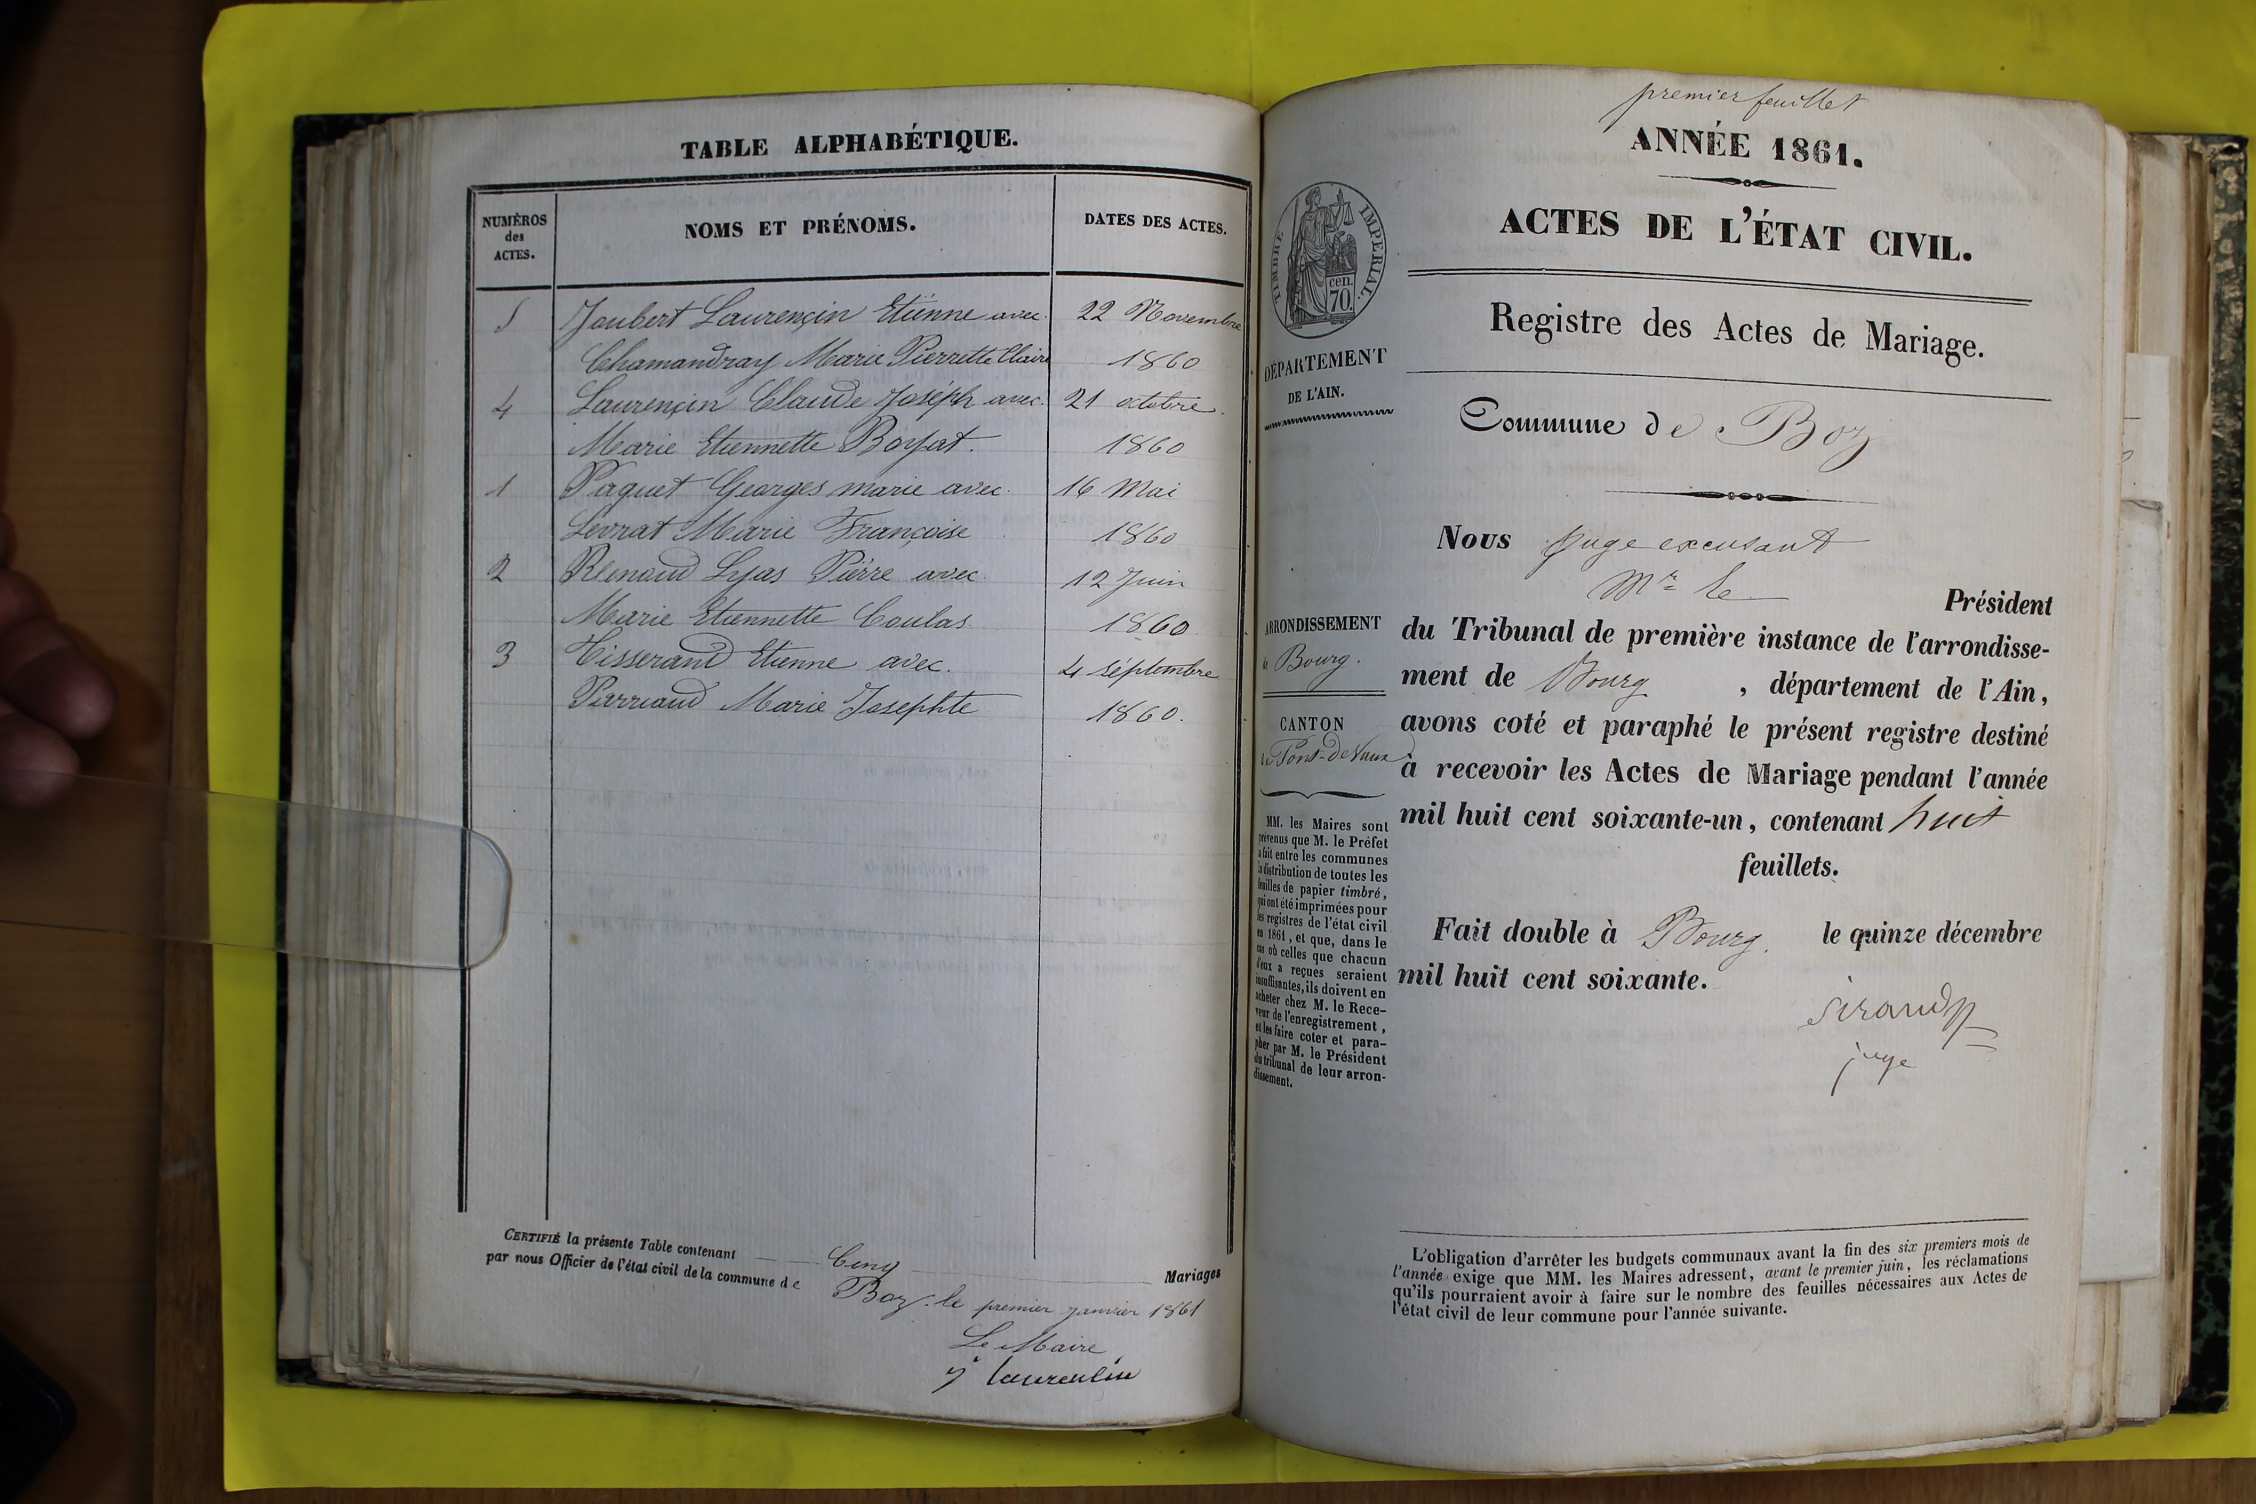 TABLE ALPHABÉTIQUE.
NUMÉROS
des
ACTES.
NOMS ET PRÉNOMS.
DATES DES ACTES.
5 Joubert Laurençin Etiénne avec. 22 Novembre
Chamandray Marie Pierrette Claire 1860
4 Laurençin Claude Joséph avec. 21 octobre.
Marie Etiennette Boyat. 1860
1 Paquet Georges marie avec. 16 Mai
Levrat Marie Françoise 1860
2 Renaud Lyas Piérre avec. 12 Juin
Marie Etiennette Coulas. 1860
3 Tisserand Etienne avec. 4 séptembre
Parriaud Marie Josephte 1860.
CERTIFIÉ la présente Table contenant Cinq Mariages
par nous Officier de l'état civil de la commune de Boz. le premier janvier 1861
Le Maire
Laurencin
premier feuillet
ANNÉE 1861.
ACTES DE L'ÉTAT CIVIL.
TIMBRE IMPÉRIAL.
cen.
70.
Registre des Actes de Mariage.
DÉPARTEMENT
DE L'AIN.
Commune de Boz
Nous Juge excusant
Mr le Président
du Tribunal de première instance de l'arrondisse-
ment de Bourg , département de l'Ain,
avons coté et paraphé le présent registre destiné
à recevoir les Actes de Mariage pendant l'année
mil huit cent soixante-un, contenant huit
feuillets.
Fait double à Bourg. le quinze décembre
mil huit cent soixante.
Sirand
juge
ARRONDISSEMENT
de Bourg.
CANTON
de Pont-de Vaux
MM. les Maires sont
prévenus que M. le Préfet
a fait entre les communes
la distribution de toutes les
feuilles de papier timbré,
qui ont été imprimées pour
les registres de l'état civil
en 1861, et que, dans le
cas où celles que chacun
d'eux a reçues seraient
insuffisantes, ils doivent en
acheter chez M. le Rece-
veur de l'enregistrement,
et les faire coter et para-
pher par M. le Président
du tribunal de leur arron-
dissement.
L'obligation d'arrêter les budgets communaux avant la fin des six premiers mois de
l'année exige que MM. les Maires adressent, avant le premier juin, les réclamations
qu'ils pourraient avoir à faire sur le nombre des feuilles nécessaires aux Actes de
l'état civil de leur commune pour l'année suivante.